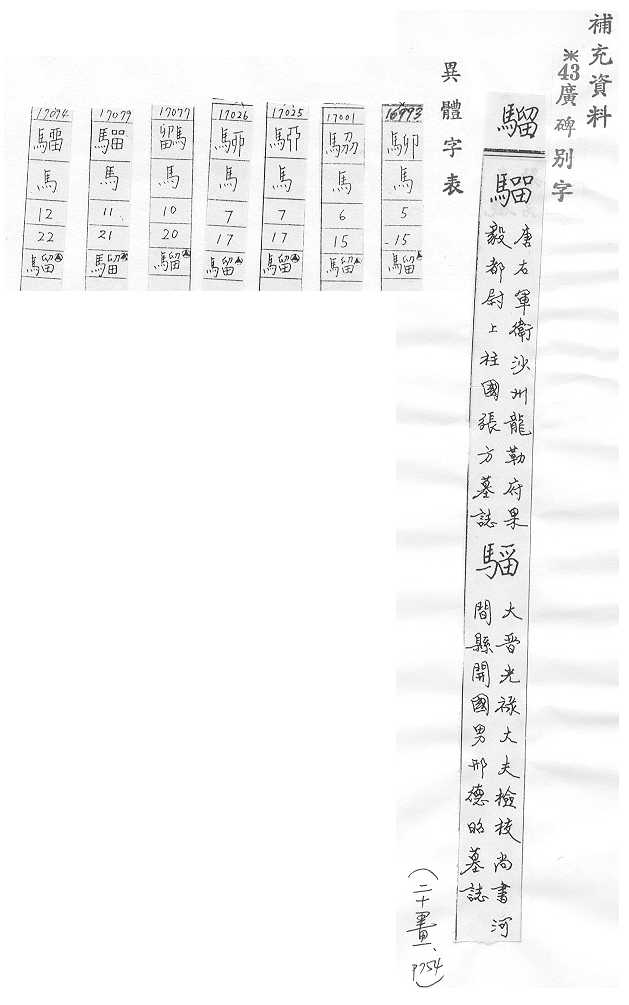 補充資料
※43廣碑別字
騮
唐右軍衛沙州龍勒府果
毅都尉上柱國張方墓誌
大晉光祿大夫檢校尚書河
間縣開國男邢德昭墓誌
(二十畫、P754)
異體字表
16993
馬
5
15
騮
17001
馬
6
15
騮
17025
馬
7
17
騮
17026
馬
7
17
騮
17077
馬
10
20
騮
17079
馬
11
21
騮
17094
馬
12
22
騮